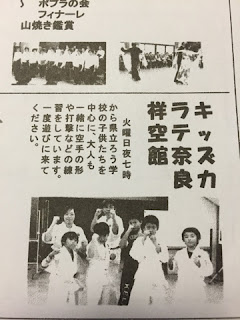 ポプラの会
フィナーレ
山焼き鑑賞
キッズカ
ラテ奈良
祥空館
火曜日夜七時
から県立ろう学
校の子供たちを
中心に、大人も
一緒に空手の形
や打撃などの練
習をしています。
一度遊びに来て
ください。